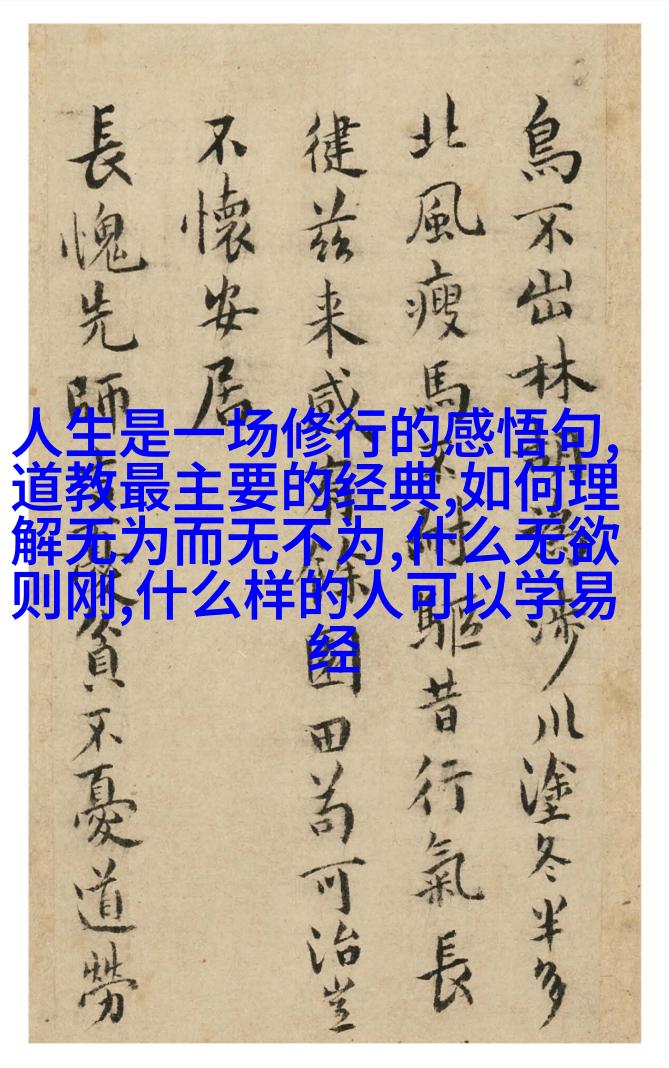 鳥不出林胡為涉川塗冬半多
北風瘦馬不耐驅昔行氣長
徤茲来感有餘園田苟可治豈
不懷安居
長愧先師貧不憂道勞
人生是一场修行的感悟句,
道教最主要的经典,如何理
解无为而无不为,什么无欲
则刚,什么样的人可以学易
经